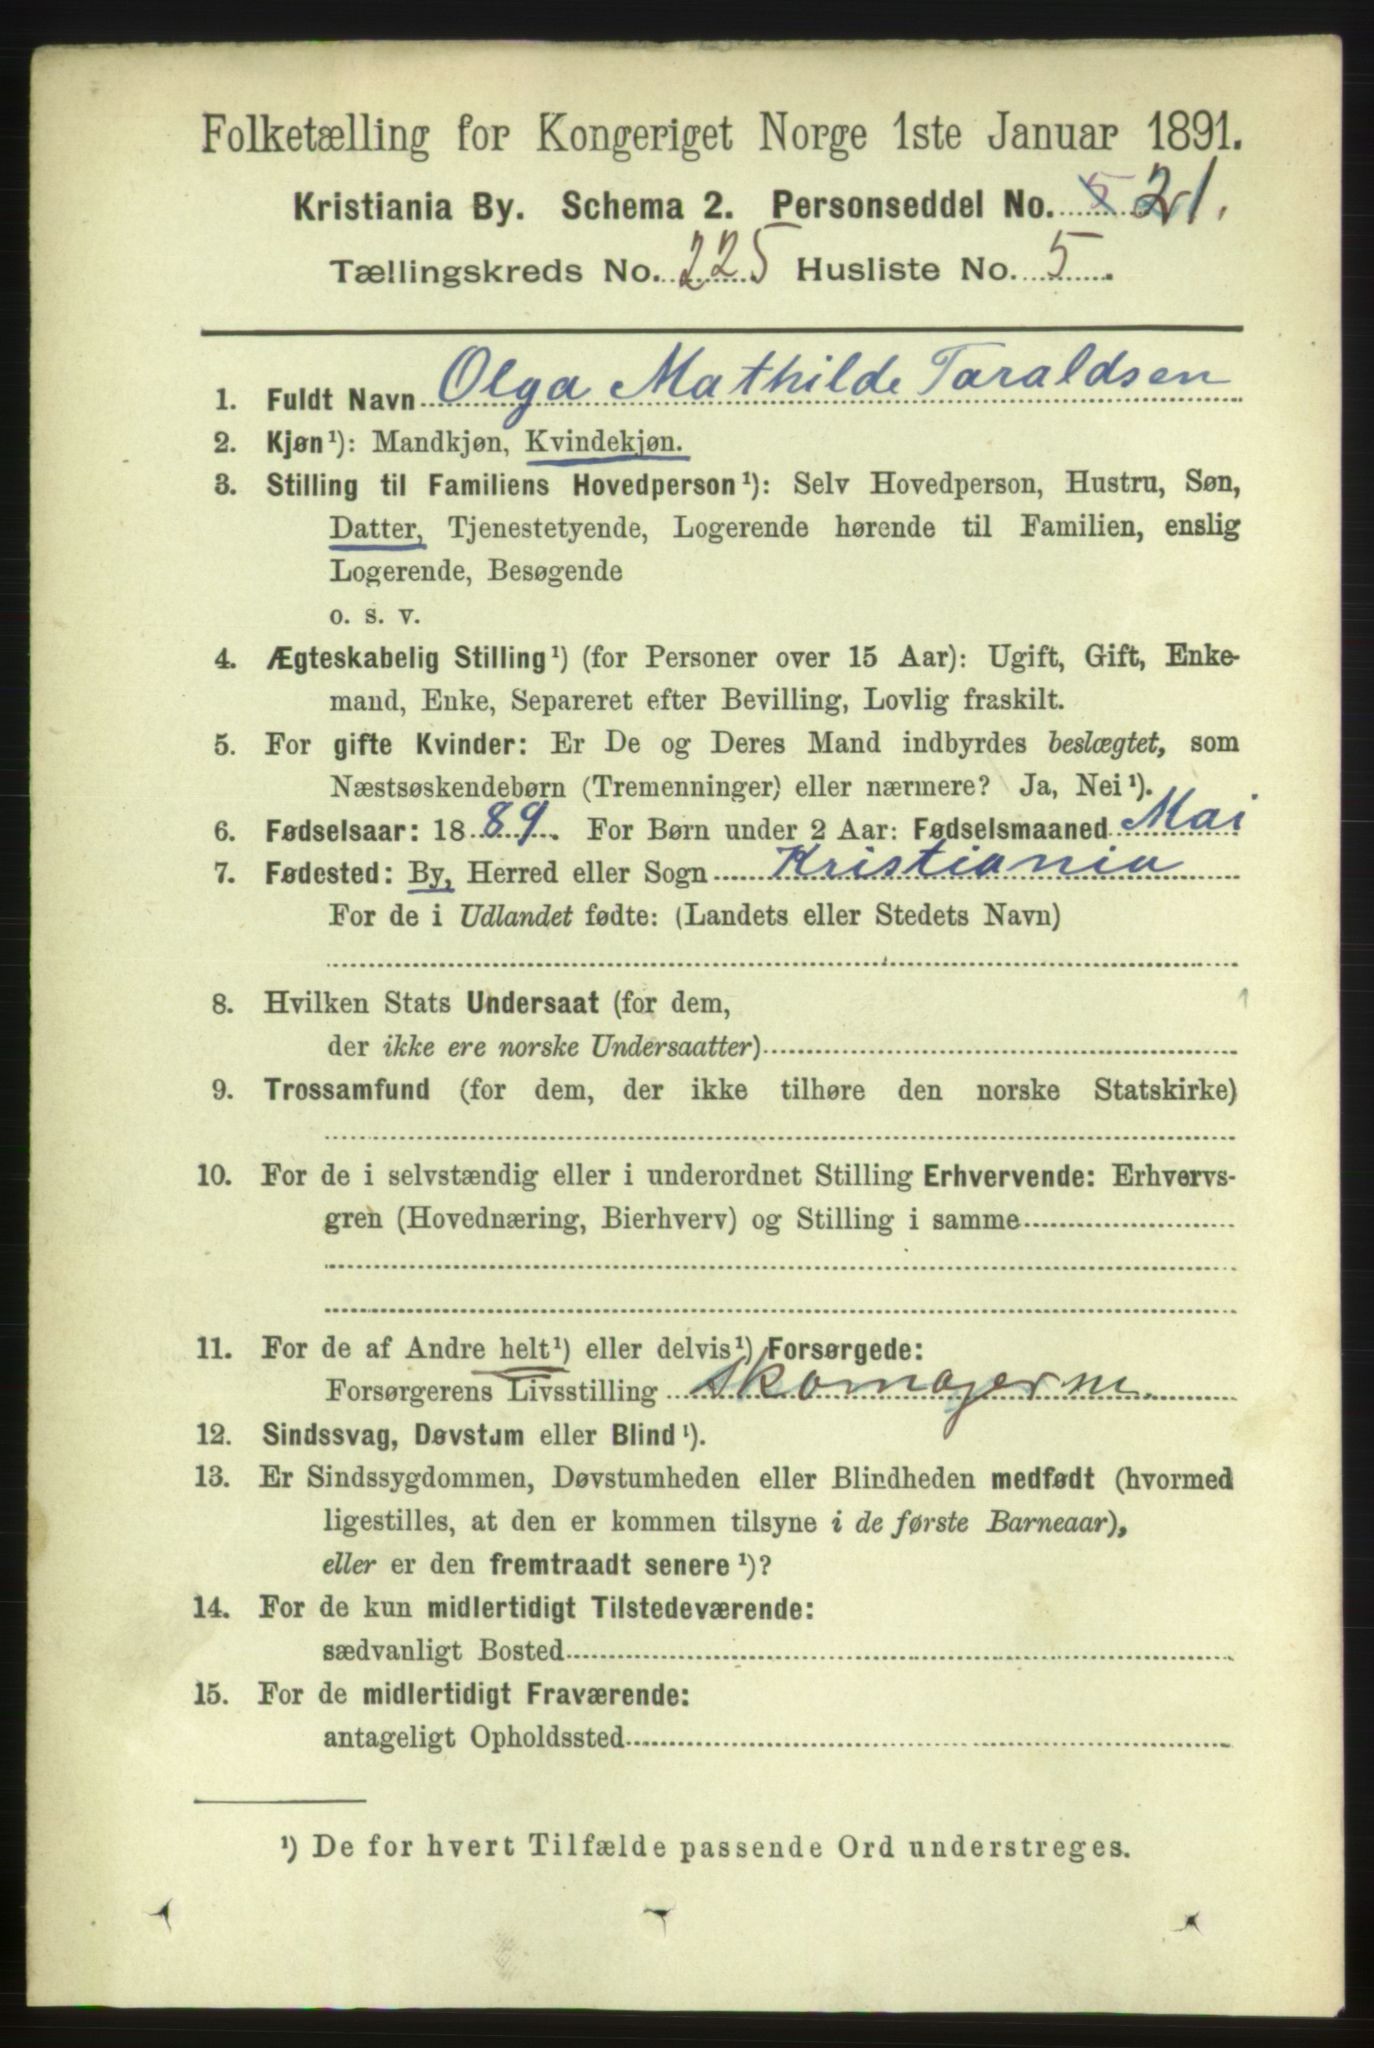 Folketælling for Kongeriget Norge 1ste Januar 1891.
Kristiania By. Schema 2. Personseddel No. 5 21.
Tællingskreds No. 225 Husliste No. 5.
1. Fuldt Navn Olga Mathilde Taraldsen
2. Kjøn¹): Mandkjøn, Kvindekjøn.
3. Stilling til Familiens Hovedperson¹): Selv Hovedperson, Hustru, Søn,
Datter, Tjenestetyende, Logerende hørende til Familien, enslig
Logerende, Besøgende
o. s. v.
4. Ægteskabelig Stilling¹) (for Personer over 15 Aar): Ugift, Gift, Enke-
mand, Enke, Separeret efter Bevilling, Lovlig fraskilt.
5. For gifte Kvinder: Er De og Deres Mand indbyrdes beslægtet, som
Næstsøskendebørn (Tremenninger) eller nærmere? Ja, Nei¹).
6. Fødselsaar: 1889. For Børn under 2 Aar: Fødselsmaaned Mai
7. Fødested: By, Herred eller Sogn Kristiania
For de i Udlandet fødte: (Landets eller Stedets Navn)
8. Hvilken Stats Undersaat (for dem,
der ikke ere norske Undersaatter)
9. Trossamfund (for dem, der ikke tilhøre den norske Statskirke)
10. For de i selvstændig eller i underordnet Stilling Erhvervende: Erhvervs-
gren (Hovednæring, Bierhverv) og Stilling i samme
11. For de af Andre helt¹) eller delvis¹) Forsørgede:
Forsørgerens Livsstilling Skomagerm.
12. Sindssvag, Døvstum eller Blind¹).
13. Er Sindssygdommen, Døvstumheden eller Blindheden medfødt (hvormed
ligestilles, at den er kommen tilsyne i de første Barneaar),
eller er den fremtraadt senere¹)?
14. For de kun midlertidigt Tilstedeværende:
sædvanligt Bosted
15. For de midlertidigt Fraværende:
antageligt Opholdssted
¹) De for hvert Tilfælde passende Ord understreges.